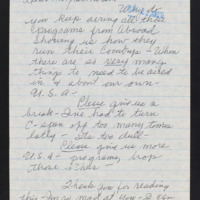 Why do
you keep airing all these
programs from Abroad
Showing us how they
run their Countrys - When
there are so very many
things to need to be asked
in & about our own -
U.S.A -
Please give us a
break - I've had to turn
C-span off too many times
lately - its too dull -
Please give us more
U.S.A - programs, drop
those
Thank You for reading
this